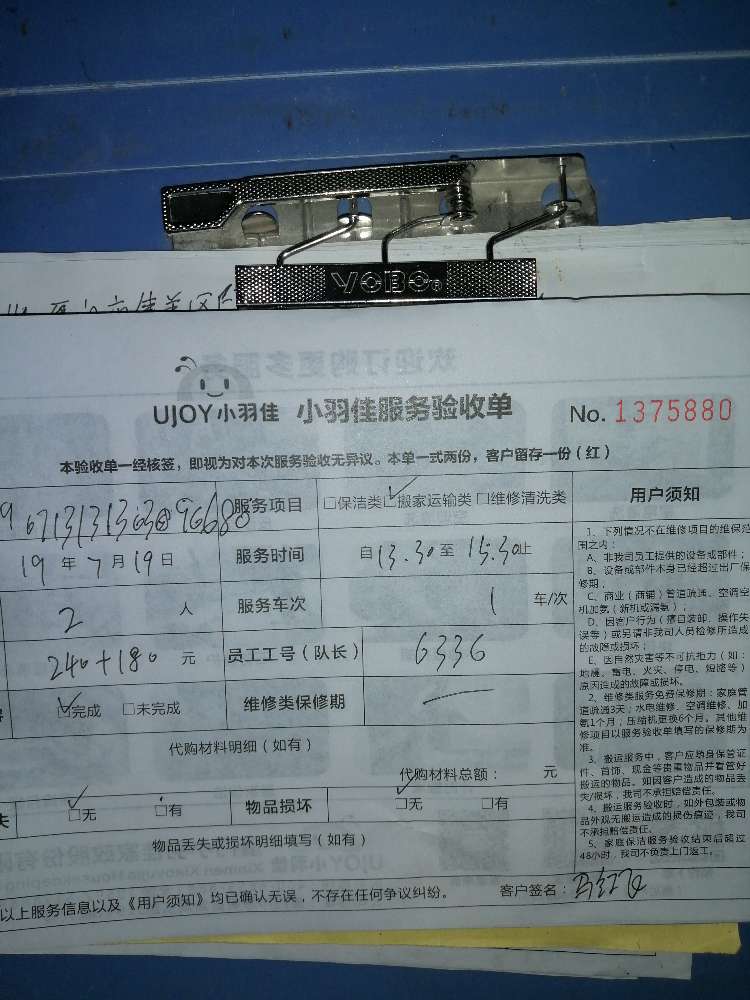 YOBO
UJOY小羽佳 小羽佳服务验收单 No. 1375880
本验收单一经核签，即视为对本次服务验收无异议。本单一式两份，客户留存一份（红）
服务项目 □保洁类 ☑搬家运输类 □维修清洗类
19年7月19日 服务时间 自13.30至15.30止
2人 服务车次 1 车/次
240+180元 员工工号（队长） 6336
☑完成 □未完成 维修类保修期
代购材料明细（如有）
代购材料总额： 元
失 ☑无 □有 物品损坏 ☑无 □有
物品丢失或损坏明细填写（如有）
以上服务信息以及《用户须知》均已确认无误，不存在任何争议纠纷。 客户签名：
用户须知
1、下列情况不在维修项目的维保范
围之内：
A、非我司员工提供的设备或部件；
B、设备或部件本身已经超过出厂保
修期；
C、商业（商铺）管道疏通、空调空
机加氨（新机或漏氨）；
D、因客户行为（擅自装卸、操作失
误等）或另请非我司人员检修所造成
的故障或损坏；
E、因自然灾害等不可抗拒力（如：
地震、雷电、火灾、停电、短路等）
原因造成的故障或损坏。
2、维修类服务免费保修期：家庭管
道疏通3天；水电维修、空调维修、加
氨1个月；压缩机更换6个月。其他维
修项目以服务验收单填写的保修期为
准。
3、搬运服务中，客户应随身保管证
件、首饰、现金等贵重物品并看管好
搬运的物品。如因客户造成的物品丢
失/损坏，我司不承担赔偿责任。
4、搬运服务验收时，如外包装或物
品外观无搬运造成的损伤痕迹，我司
不承担赔偿责任。
5、家庭保洁服务验收结束后超过
48小时，我司不负责上门返工。